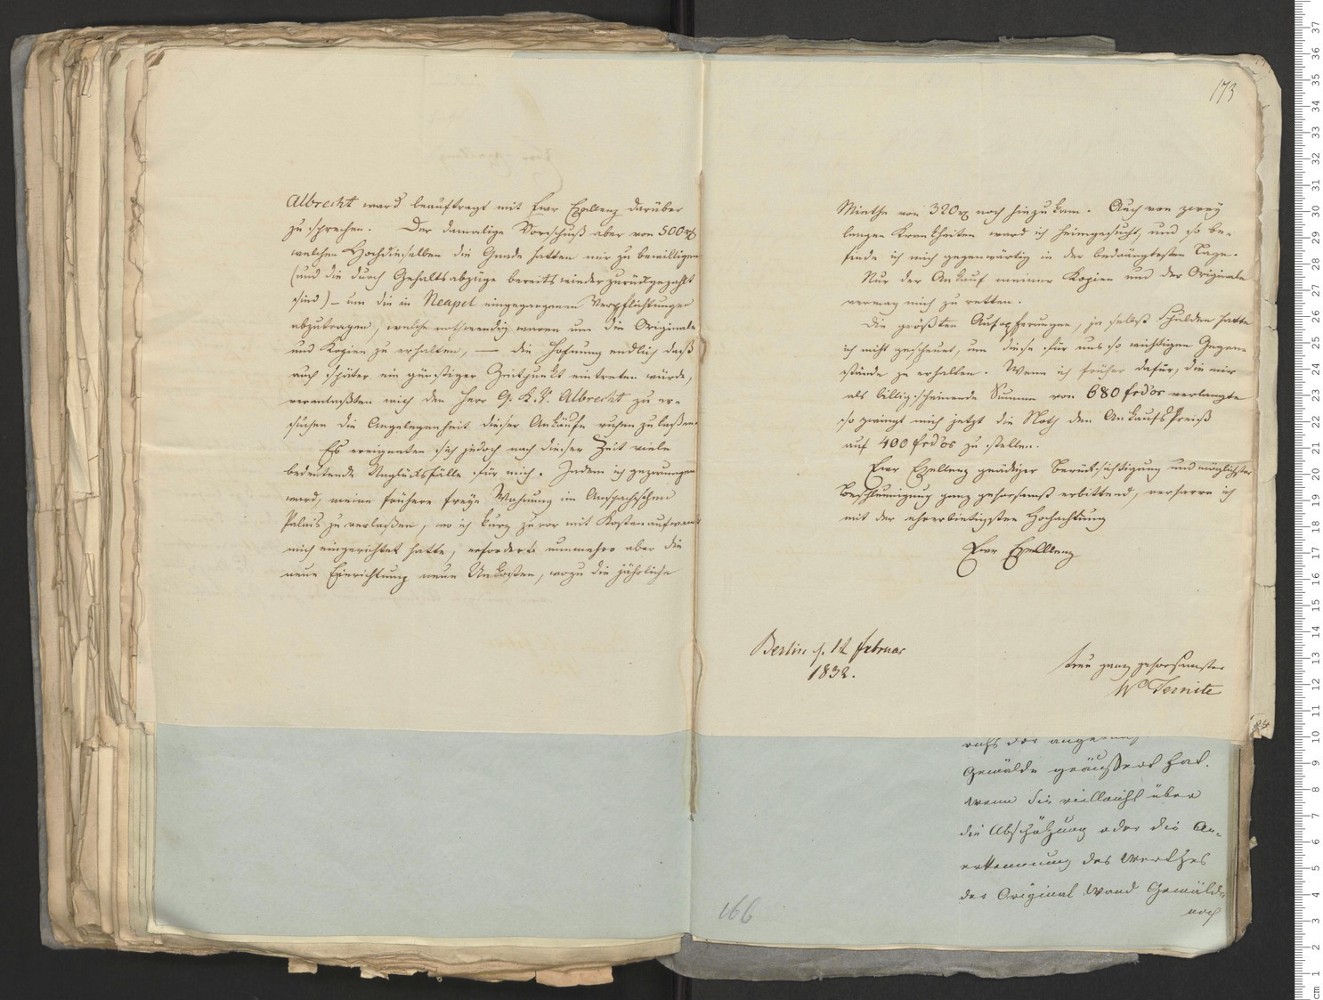 Albrecht ward beauftragt mit Ewr Exellenz darüber
zu sprechen. Der damalige Vorschuß aber von 500 rt
welchen Hochdieselben die Gnade hatten mir zu bewilligen
(und die durch Gehaltsabzüge bereits wieder zurückgezahlt
sind) – um die in Neapel eingegangenen Verpflichtungen
abzutragen, welche nothwendig waren um die Originale
und Kopien zu erhalten, — die Hofnung endlich daß
auch später ein günstiger Zeitpunkt eintreten würde,
veranlaßten mich den Herr G. K. R. Albrecht zu er-
suchen die Angelegenheit dieser Ankäufe ruhen zu laßen.
Es ereigneten sich jedoch nach dieser Zeit viele
bedeutende Unglücksfälle für mich. Indem ich gezwungen
ward, meine frühere freye Wohnung im Anspachschen
Palais zu verlaßen, wo ich kurz zuvor mit Kostenaufwand
mich eingerichtet hatte, erforderte nunmehro aber die
neue Einrichtung neue Unkosten, wozu die jährliche
173
Miethe von 320 rt noch hinzukam. Auch von zwey
langen Krankheiten ward ich heimgesucht, und so be-
finde ich mich gegenwärtig in der bedrängtesten Lage.
Nur der Ankauf meiner Kopien und der Originale
vermag mich zu retten.
Die größten Aufopferungen, ja selbst Schulden hatte
ich nicht gescheuet, um diese für uns so wichtigen Gegen-
stände zu erhalten. Wenn ich früher dafür, die mir
als billig scheinende Summe von 680 frdor verlangte
so zwingt mich jetzt die Noth den Ankaufs Preiß
auf 400 frdors zu stellen.
Ewr Exellenz gnädiger Berücksichtigung und möglichster
Beschleunigung ganz gehorsamst erbittend, verharre ich
mit der ehrerbietigsten Hochachtung
Ewr Exellenz
Berlin d. 12 februar
1832.
ganz gehorsamster
W. Ternite
Gemälde geäußert hat.
wenn Sie vielleicht über
die Abschätzung oder die An-
erkennung des Werthes
der Original Wand Gemälde
noch
166